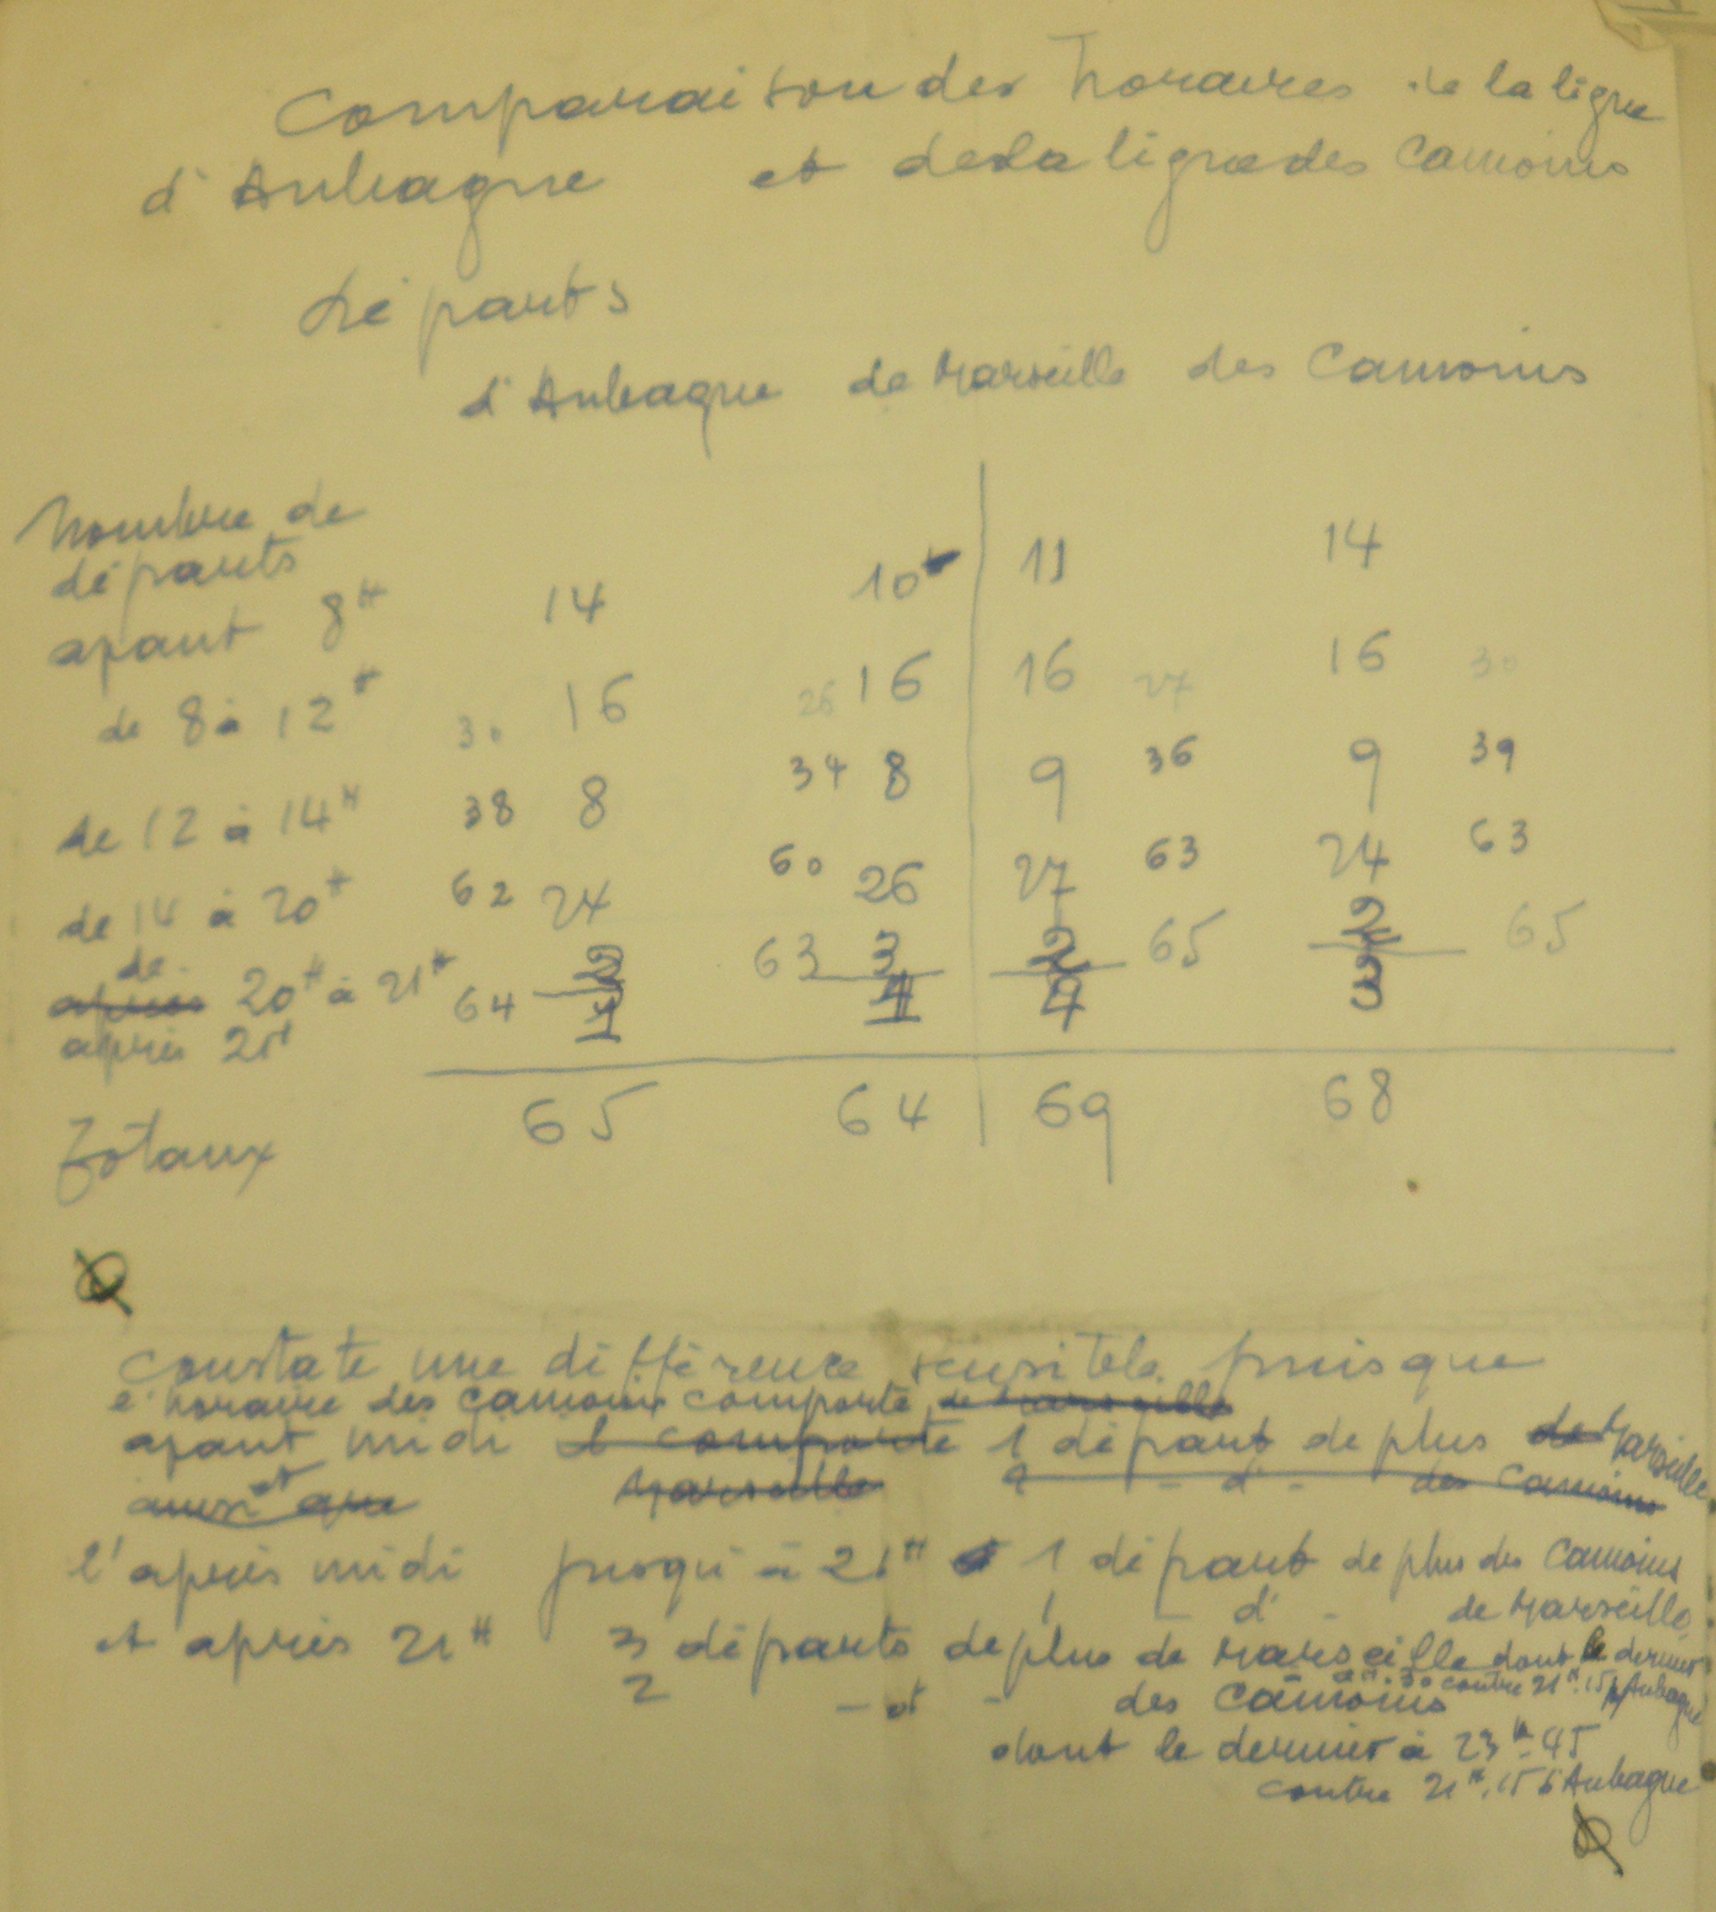 Comparaison des horaires de la ligne
d'Aubagne et de la ligne des Camoins
Départs
d'Aubagne de Marseille des Camoins
Nombre de
départs
avant 8H 14 10 11 14
de 8 à 12H 30 16 26 16 16 27 16 30
de 12 à 14H 38 8 34 8 9 36 9 39
de 14 à 20H 62 24 60 26 27 63 24 63
de
après 20H à 21H 64 2 63 3 2 65 2 65
après 21H 1 1 4 3
Totaux 65 64 69 68
constate une différence sensible puisque
l'horaire des Camoins comporte de Marseille
avant midi il comporte 1 départ de plus de Marseille
ainsi que et Marseille - d° - des Camoins
l'après midi jusqu'à 21H 1 départ de plus des Camoins
1 - d° - de Marseille
et après 21H 3 départs de plus de Marseille dont le dernier
30 contre 21H.15 d'Aubagne
2 - d° - des Camoins
dont le dernier à 23H.45
contre 21H.15 d'Aubagne